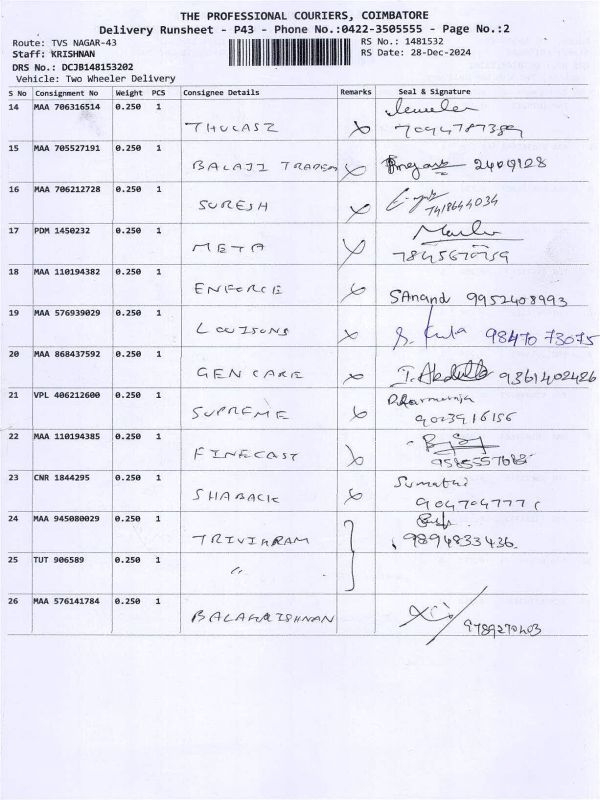 THE PROFESSIONAL COURIERS, COIMBATORE
Delivery Runsheet - P43 - Phone No.:0422-3505555 - Page No.:2
Route: TVS NAGAR-43 RS No.: 1481532
Staff: KRISHNAN RS Date: 28-Dec-2024
DRS No.: DCJB148153202
Vehicle: Two Wheeler Delivery
S No Consignment No Weight PCS Consignee Details Remarks Seal & Signature
14 MAA 706316514 0.250 1
THULASZ
15 MAA 705527191 0.250 1
BALAJI TRADERS 2409128
16 MAA 706212728 0.250 1
SURESH 7418644034
17 PDM 1450232 0.250 1
META
18 MAA 110194382 0.250 1
ENFORCE SAnand 9952408993
19 MAA 576939029 0.250 1
LOUISONS 98470 73075
20 MAA 868437592 0.250 1
GEN CARE 9361402426
21 VPL 406212600 0.250 1
SUPREME 9023916156
22 MAA 110194385 0.250 1
FINECAST
23 CNR 1844295 0.250 1 Sumathi
SHABACK
24 MAA 945080029 0.250 1
TRIVIKRAM 9894833436
25 TUT 906589 0.250 1
"
26 MAA 576141784 0.250 1
BALAKRISHNAN 9789270403